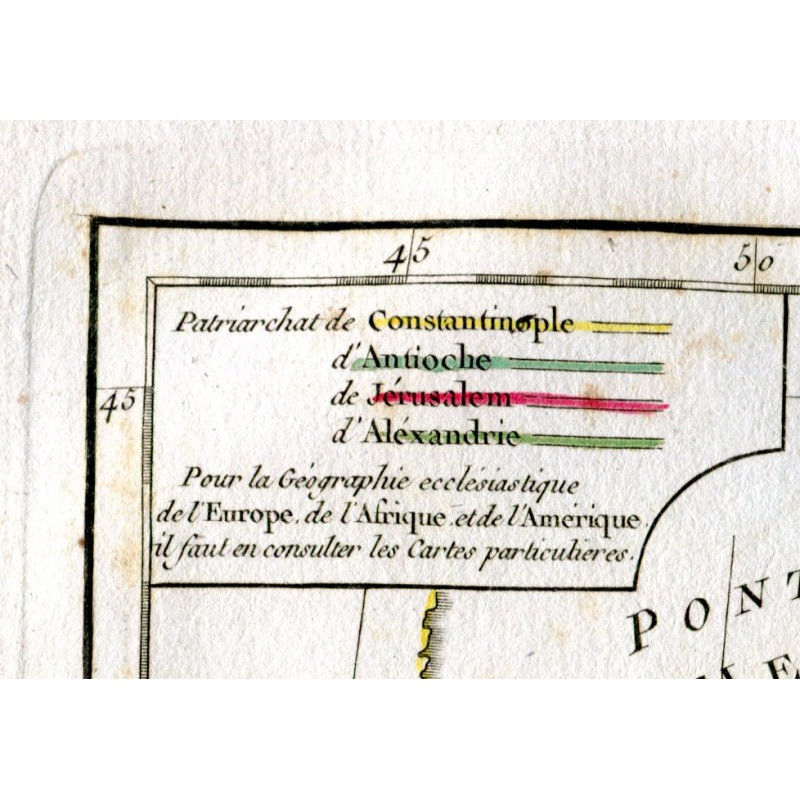 45 50
45
Patriarchat de Constantinople
d'Antioche
de Jérusalem
d'Aléxandrie
Pour la Géographie ecclésiastique
de l'Europe, de l'Afrique et de l'Amérique,
il faut en consulter les Cartes particulieres.
PONT